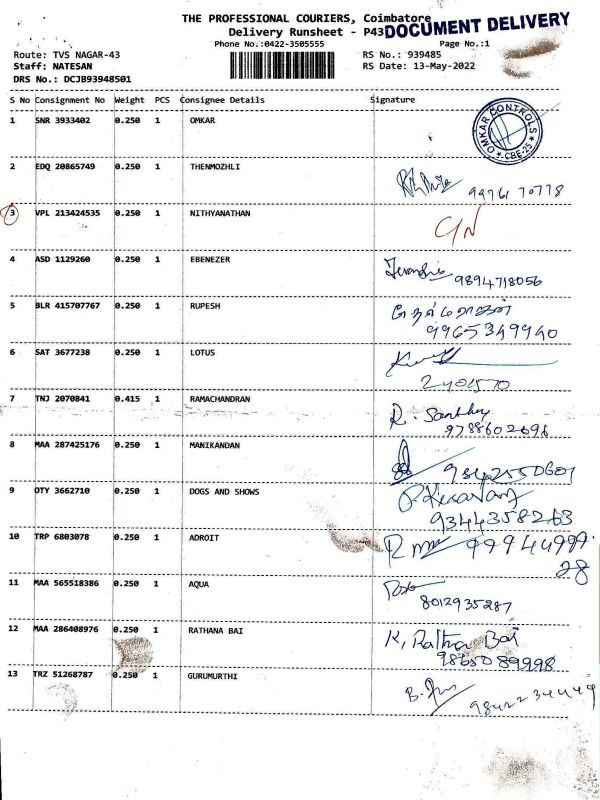 THE PROFESSIONAL COURIERS, Coimbatore
Delivery Runsheet - P43 DOCUMENT DELIVERY
Phone No.:0422-3505555 Page No.:1
Route: TVS NAGAR-43 RS No.: 939485
Staff: NATESAN RS Date: 13-May-2022
DRS No.: DCJB93948501
S No Consignment No Weight PCS Consignee Details Signature
1 SNR 3933402 0.250 1 OMKAR OMKAR CONTROLS CBE-25
2 EDQ 20865749 0.250 1 THENMOZHLI
99761 70778
3 VPL 213424535 0.250 1 NITHYANATHAN
4 ASD 1129260 0.250 1 EBENEZER
9894718056
5 BLR 415707767 0.250 1 RUPESH
9965349940
6 SAT 3677238 0.250 1 LOTUS
2401570
7 TNJ 2070841 0.415 1 RAMACHANDRAN
9788602696
8 MAA 287425176 0.250 1 MANIKANDAN
9842550607
9 OTY 3662710 0.250 1 DOGS AND SHOWS
9344358263
10 TRP 6803078 0.250 1 ADROIT
99944999
28
11 MAA 565518386 0.250 1 AQUA
8012935287
12 MAA 286408976 0.250 1 RATHANA BAI K. Rathna Bai
9865089998
13 TRZ 51268787 0.250 1 GURUMURTHI
9842234449